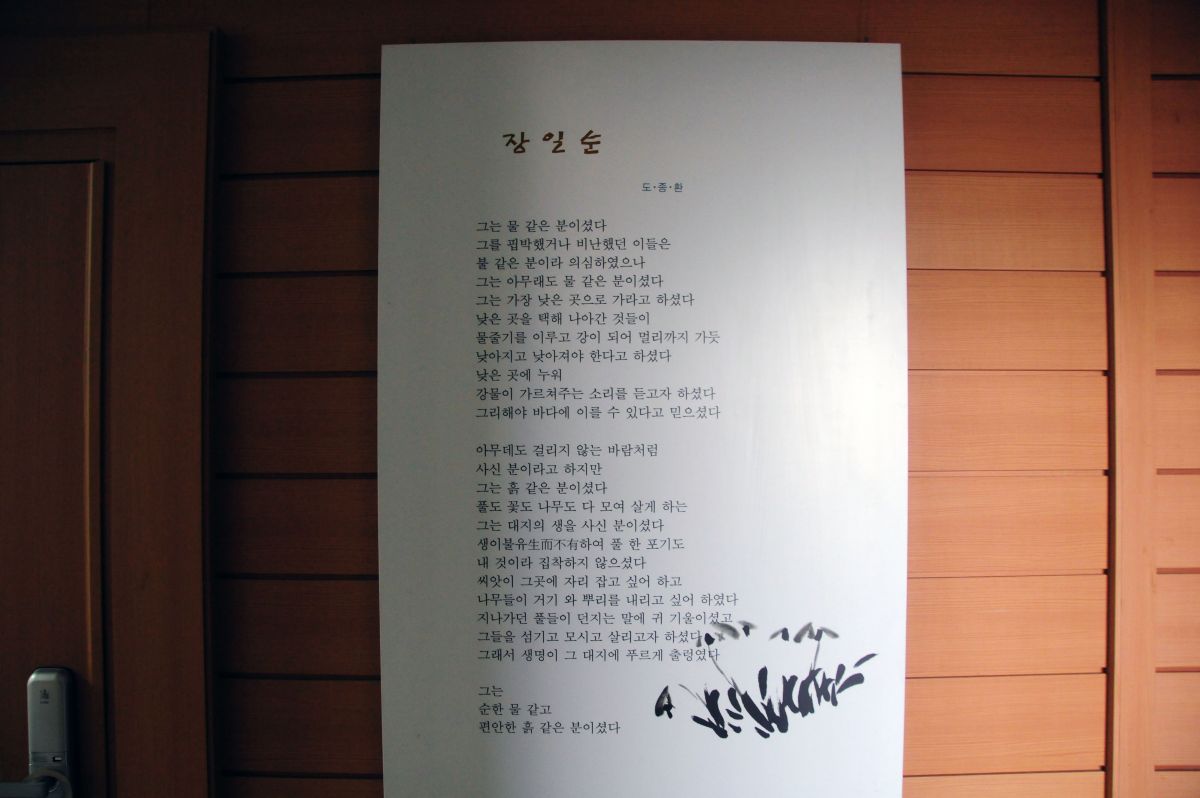 장일순
도·종·환
그는 물 같은 분이셨다
그를 핍박했거나 비난했던 이들은
불 같은 분이라 의심하였으나
그는 아무래도 물 같은 분이셨다
그는 가장 낮은 곳으로 가라고 하셨다
낮은 곳을 택해 나아간 것들이
물줄기를 이루고 강이 되어 멀리까지 가듯
낮아지고 낮아져야 한다고 하셨다
낮은 곳에 누워
강물이 가르쳐주는 소리를 듣고자 하셨다
그리해야 바다에 이를 수 있다고 믿으셨다
아무데도 걸리지 않는 바람처럼
사신 분이라고 하지만
그는 흙 같은 분이셨다
풀도 꽃도 나무도 다 모여 살게 하는
그는 대지의 생을 사신 분이셨다
생이불유生而不有하여 풀 한 포기도
내 것이라 집착하지 않으셨다
씨앗이 그곳에 자리 잡고 싶어 하고
나무들이 거기 와 뿌리를 내리고 싶어 하였다
지나가던 풀들이 던지는 말에 귀 기울이셨고
그들을 섬기고 모시고 살리고자 하셨다
그래서 생명이 그 대지에 푸르게 출렁였다
그는
순한 물 같고
편안한 흙 같은 분이셨다